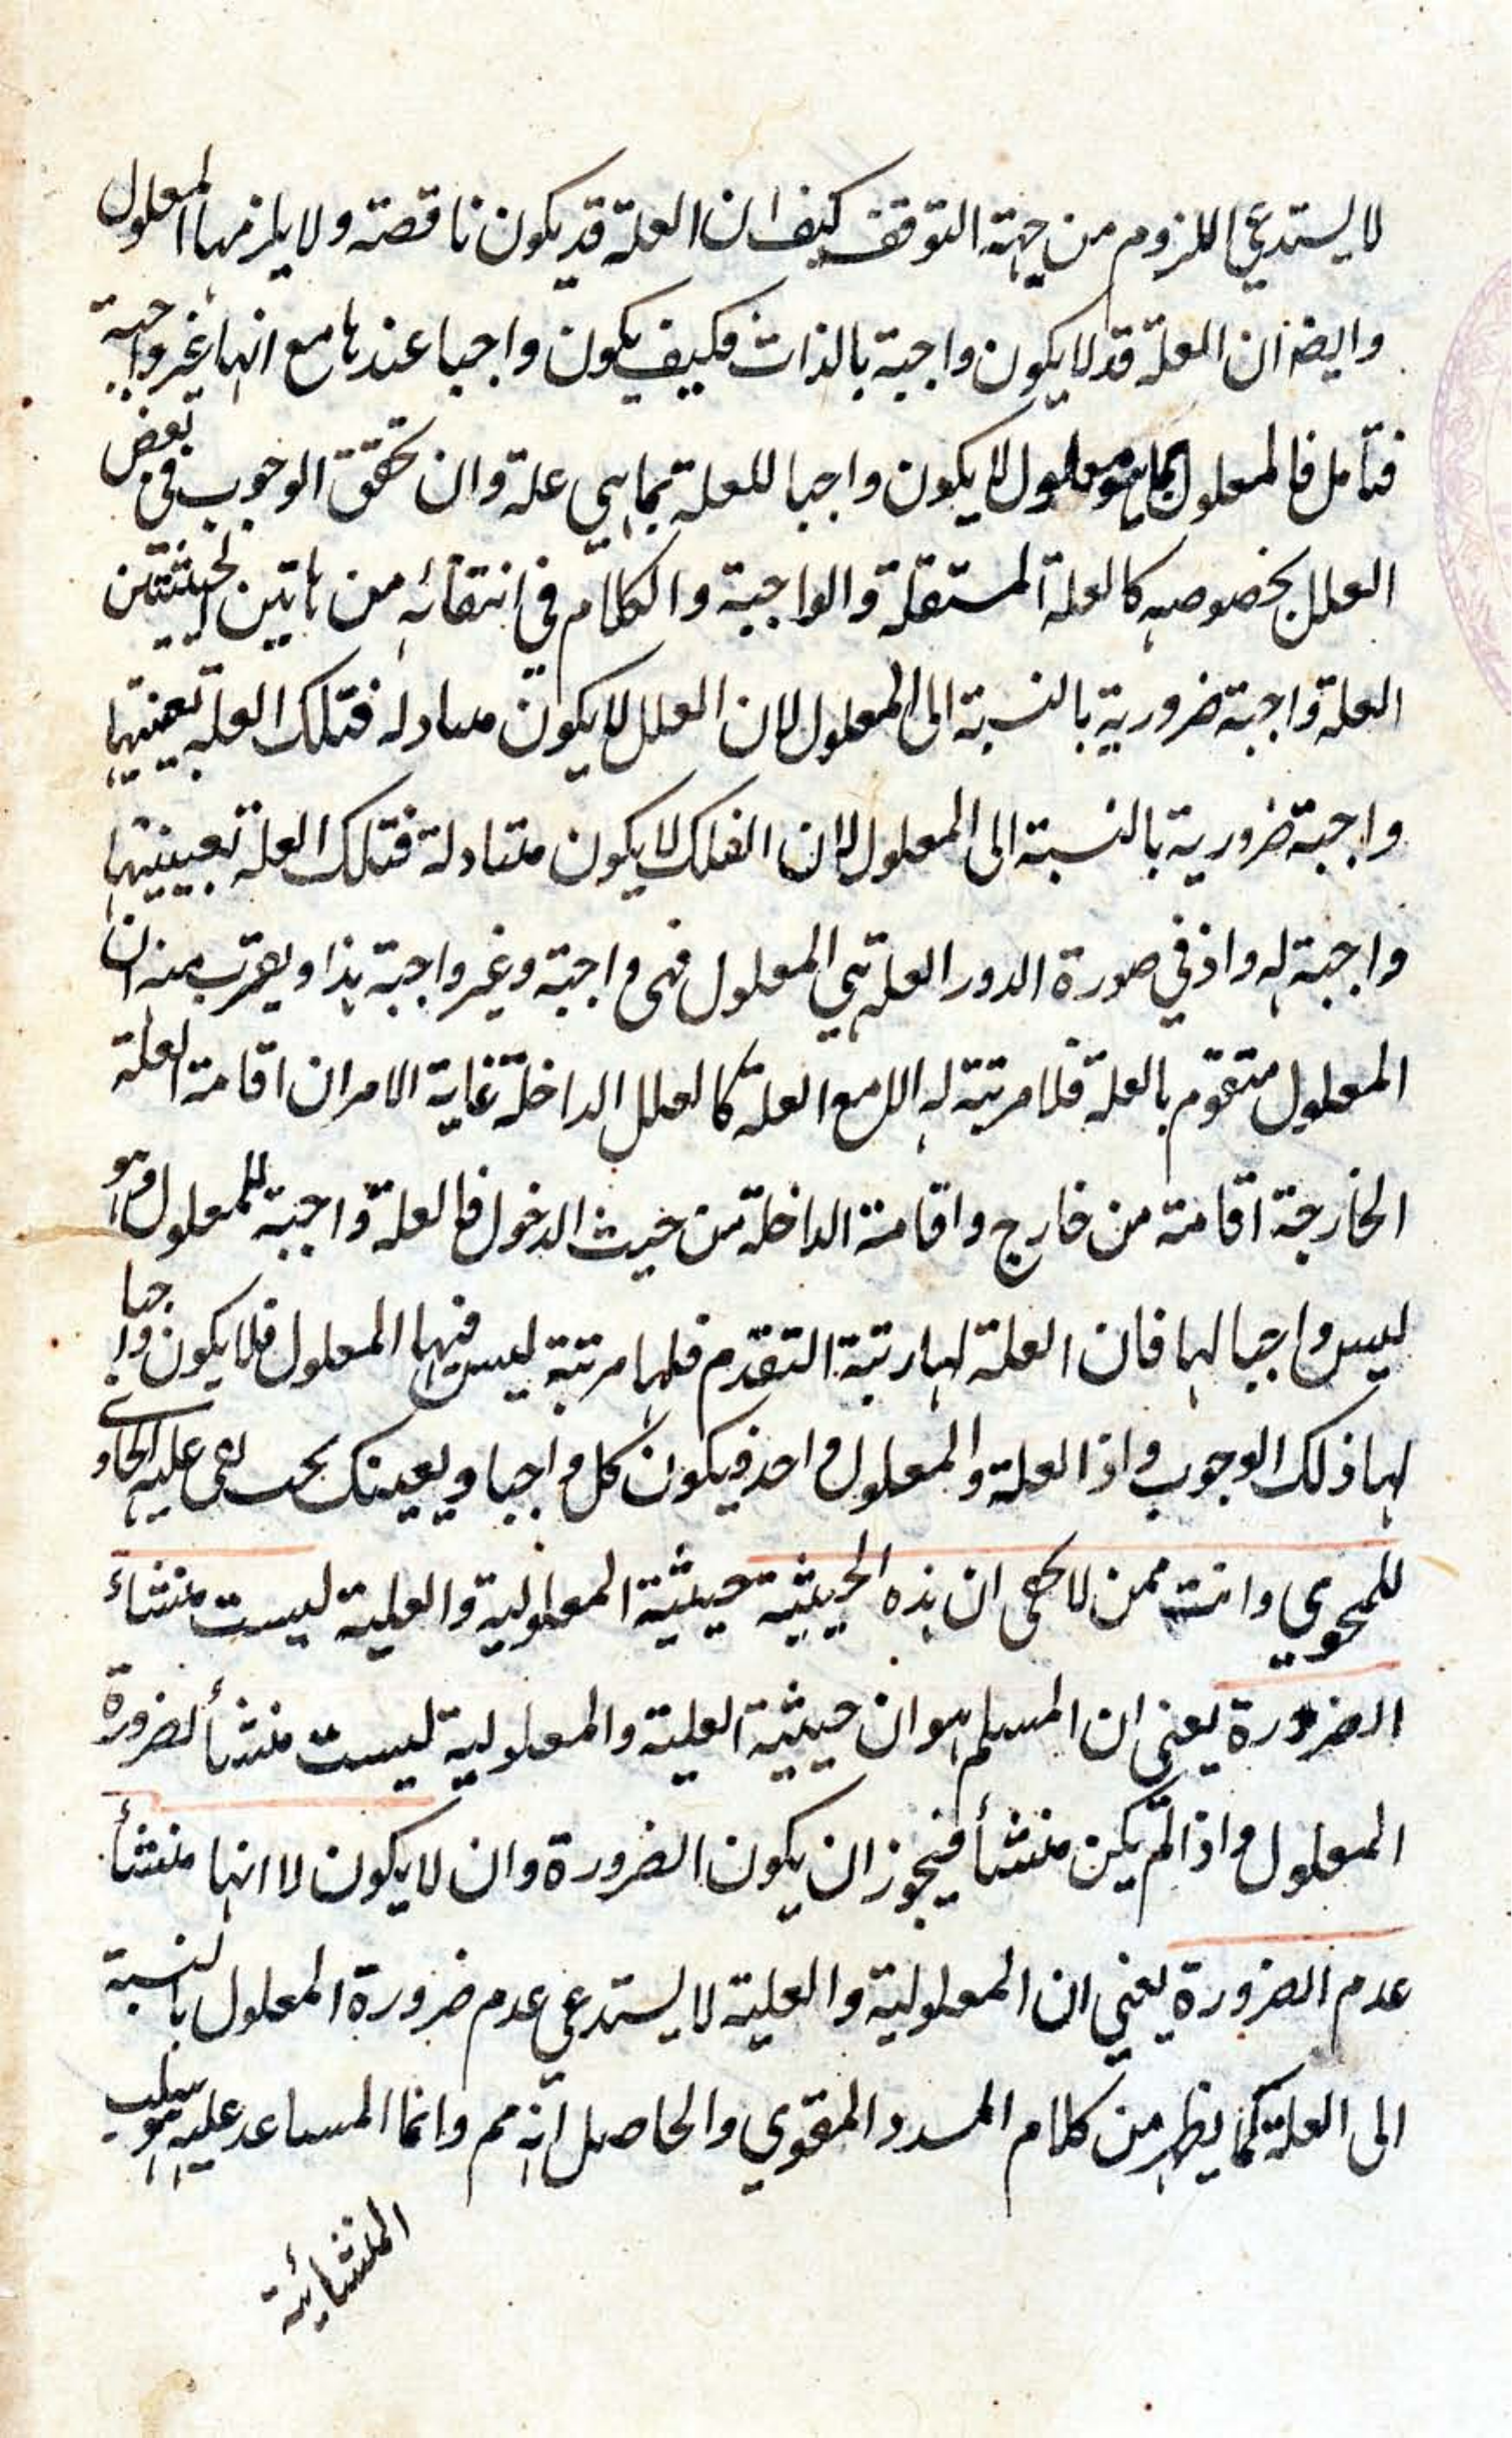 لا يستدعي اللزوم من جهة التوقف كيف ان العلة قد يكون ناقصة ولا يلزمها المعلول
وايضا ان العلة قد لا يكون واجبة بالذات فكيف يكون واجبا عندها مع انها غير واجبة
فتأمل فالمعلول بما هو معلول لا يكون واجبا للعلة بما هي علة وان تحقق الوجوب في بعض
العلل بخصوصه كالعلة المستقلة والواجبة والكلام في انتفائه من هاتين الحيثيتين
العلة واجبة ضرورية بالنسبة الى المعلول لان العلل لا يكون متبادلة فتلك العلة بعينيتها
واجبة ضرورية بالنسبة الى المعلول لان الفلك لا يكون متبادلة فتلك العلة بعينيتها
واجبة له واذ في صورة الدور العلة هي المعلول فهى واجبة وغير واجبة هذا ويقرب منه ان
المعلول متقوم بالعلة فلا مرتبة له الا مع العلة كالعلل الداخلة غاية الامر ان اقامة العلة
الخارجة اقامة من خارج واقامة الداخلة من حيث الدخول فالعلة واجبة للمعلول وهو
ليس واجبا لها فان العلة لها رتبة التقدم فلها مرتبة ليس فيها المعلول فلا يكون واجبا
لها ذلك الوجوب واذا العلة والمعلول واحد فيكون كل واجبا ويعينك بحث نفى علية الحاوى
للمحوي وانت ممن لا يخفى ان هذه الحيثية حيثية المعلولية والعلية ليست منشاء
الضرورة يعنى ان المسلم هو ان حيثية العلية والمعلولية ليست منشأ لضرورة
المعلول واذا لم يكن منشأ فيجوز ان يكون الضرورة وان لا يكون لا انها منشأ
عدم الضرورة يعني ان المعلولية والعلية لا يستدعي عدم ضرورة المعلول بالنسبة
الى العلة كما يظهر من كلام المسدد المقوي والحاصل انه مم وانما المساعد عليه هو سلب
المنشائية